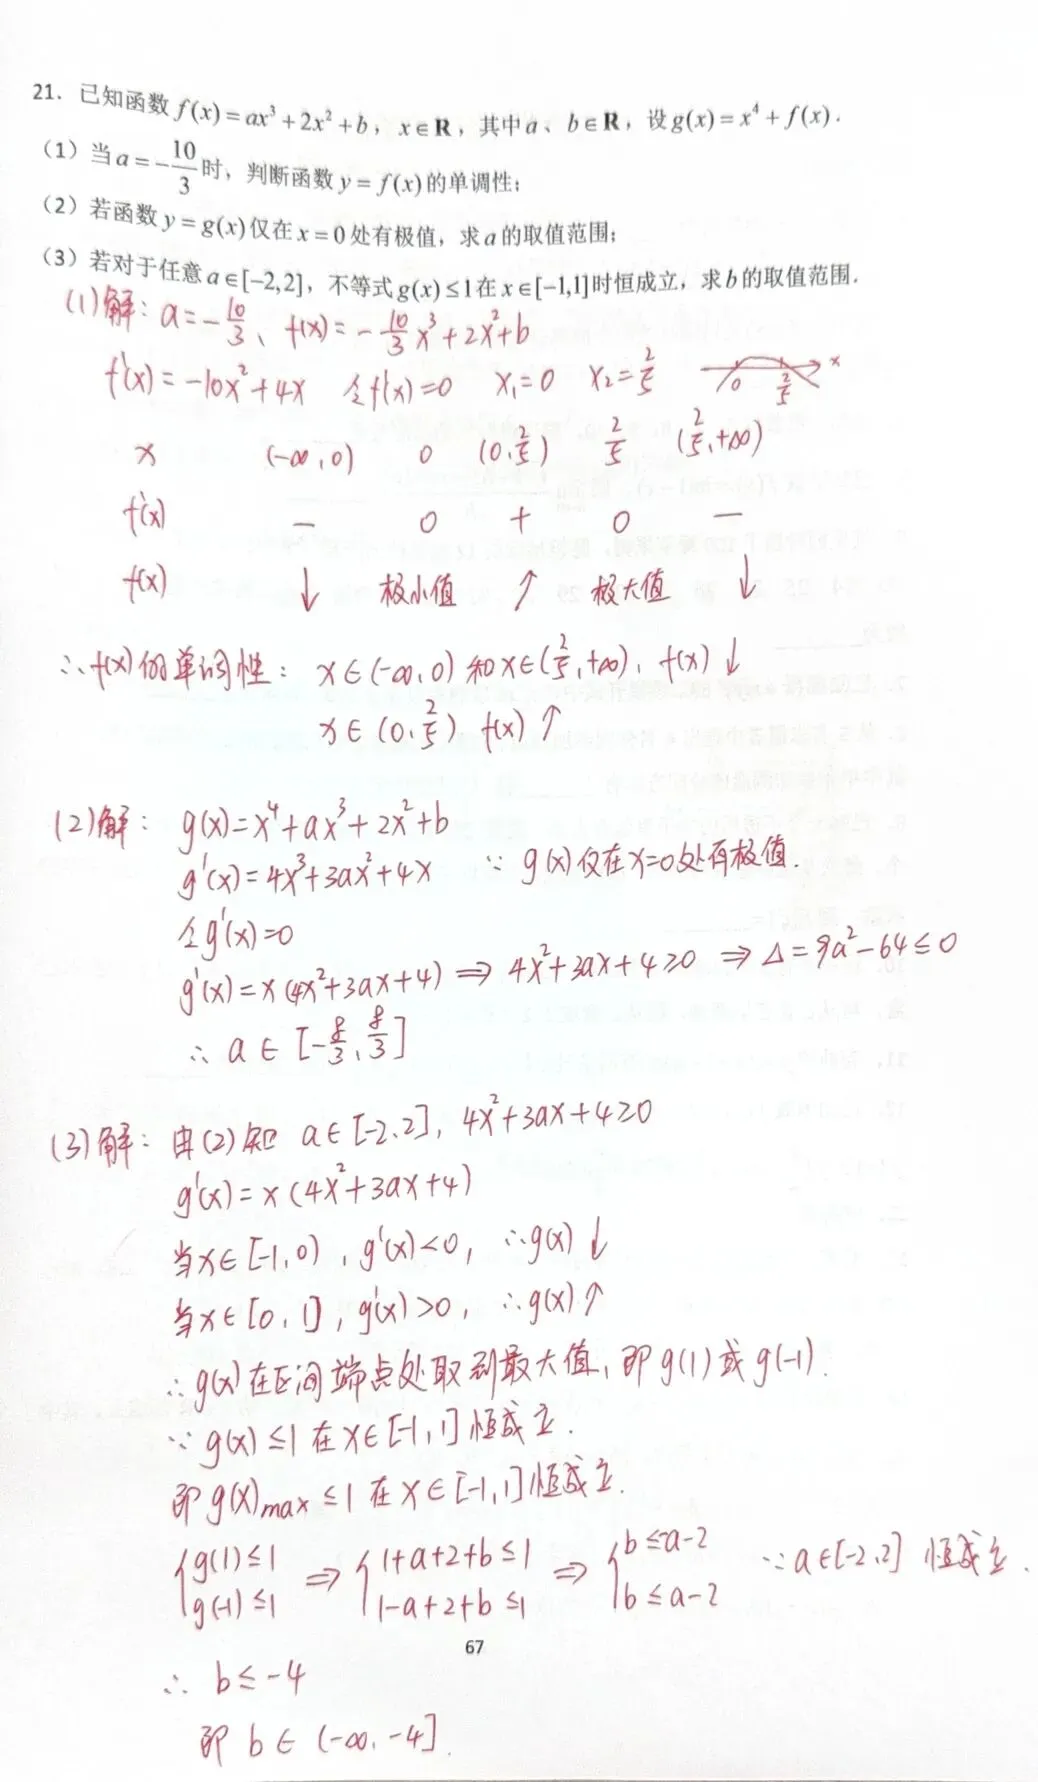 21. 已知函数 f(x)=ax³+2x²+b, x∈R, 其中 a、b∈R, 设 g(x)=x⁴+f(x).
(1) 当 a=-10/3 时, 判断函数 y=f(x) 的单调性;
(2) 若函数 y=g(x) 仅在 x=0 处有极值, 求 a 的取值范围;
(3) 若对于任意 a∈[-2,2], 不等式 g(x)≤1 在 x∈[-1,1] 时恒成立, 求 b 的取值范围.
(1)解: a=-10/3、f(x)=-10/3x³+2x²+b
f'(x)=-10x²+4x 令f'(x)=0 x₁=0 x₂=2/5 0 2/5 x
x (-∞,0) 0 (0,2/5) 2/5 (2/5,+∞)
f'(x) - 0 + 0 -
f(x) ↓ 极小值 ↑ 极大值 ↓
∴f(x)的单调性: x∈(-∞,0)和x∈(2/5,+∞), f(x)↓
x∈(0,2/5), f(x)↑
(2)解: g(x)=x⁴+ax³+2x²+b
g'(x)=4x³+3ax²+4x ∵g(x)仅在x=0处有极值.
令g'(x)=0
g'(x)=x(4x²+3ax+4)⇒4x²+3ax+4≥0⇒Δ=9a²-64≤0
∴a∈[-8/3,8/3]
(3)解: 由(2)知 a∈[-2,2], 4x²+3ax+4≥0
g'(x)=x(4x²+3ax+4)
当x∈[-1,0), g'(x)<0, ∴g(x)↓
当x∈[0,1], g'(x)>0, ∴g(x)↑
∴g(x)在区间端点处取到最大值, 即g(1)或g(-1).
∵g(x)≤1在x∈[-1,1]恒成立.
即g(x)max≤1在x∈[-1,1]恒成立.
{g(1)≤1 ⇒ {1+a+2+b≤1 ⇒ {b≤-a-2 ∵a∈[-2,2]恒成立.
g(-1)≤1 1-a+2+b≤1 b≤a-2
67
∴ b≤-4
即 b∈(-∞,-4].